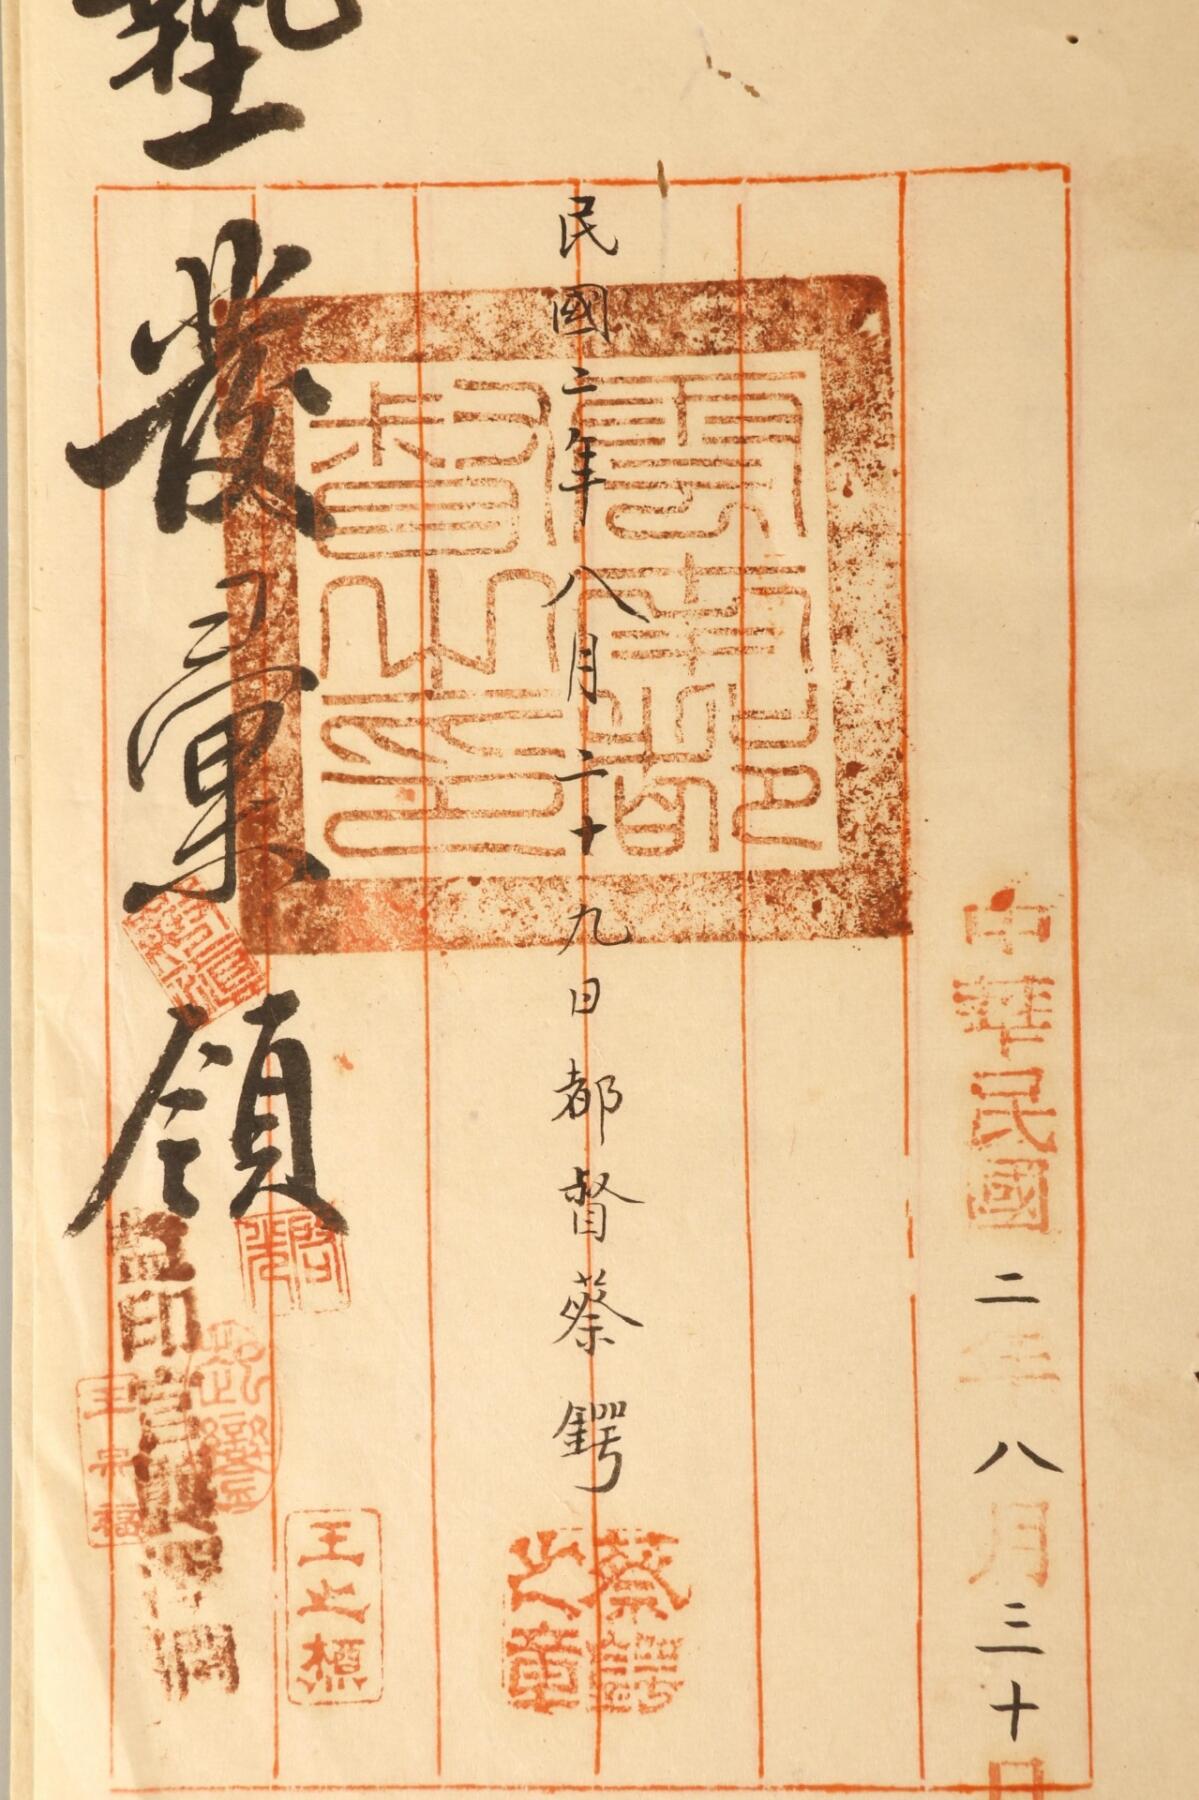 中華民國二年八月三十日
民國二年八月二十九日都督蔡鍔
雲南都督之印
蔡鍔之章
發彙領
王之
監印官
王宗福